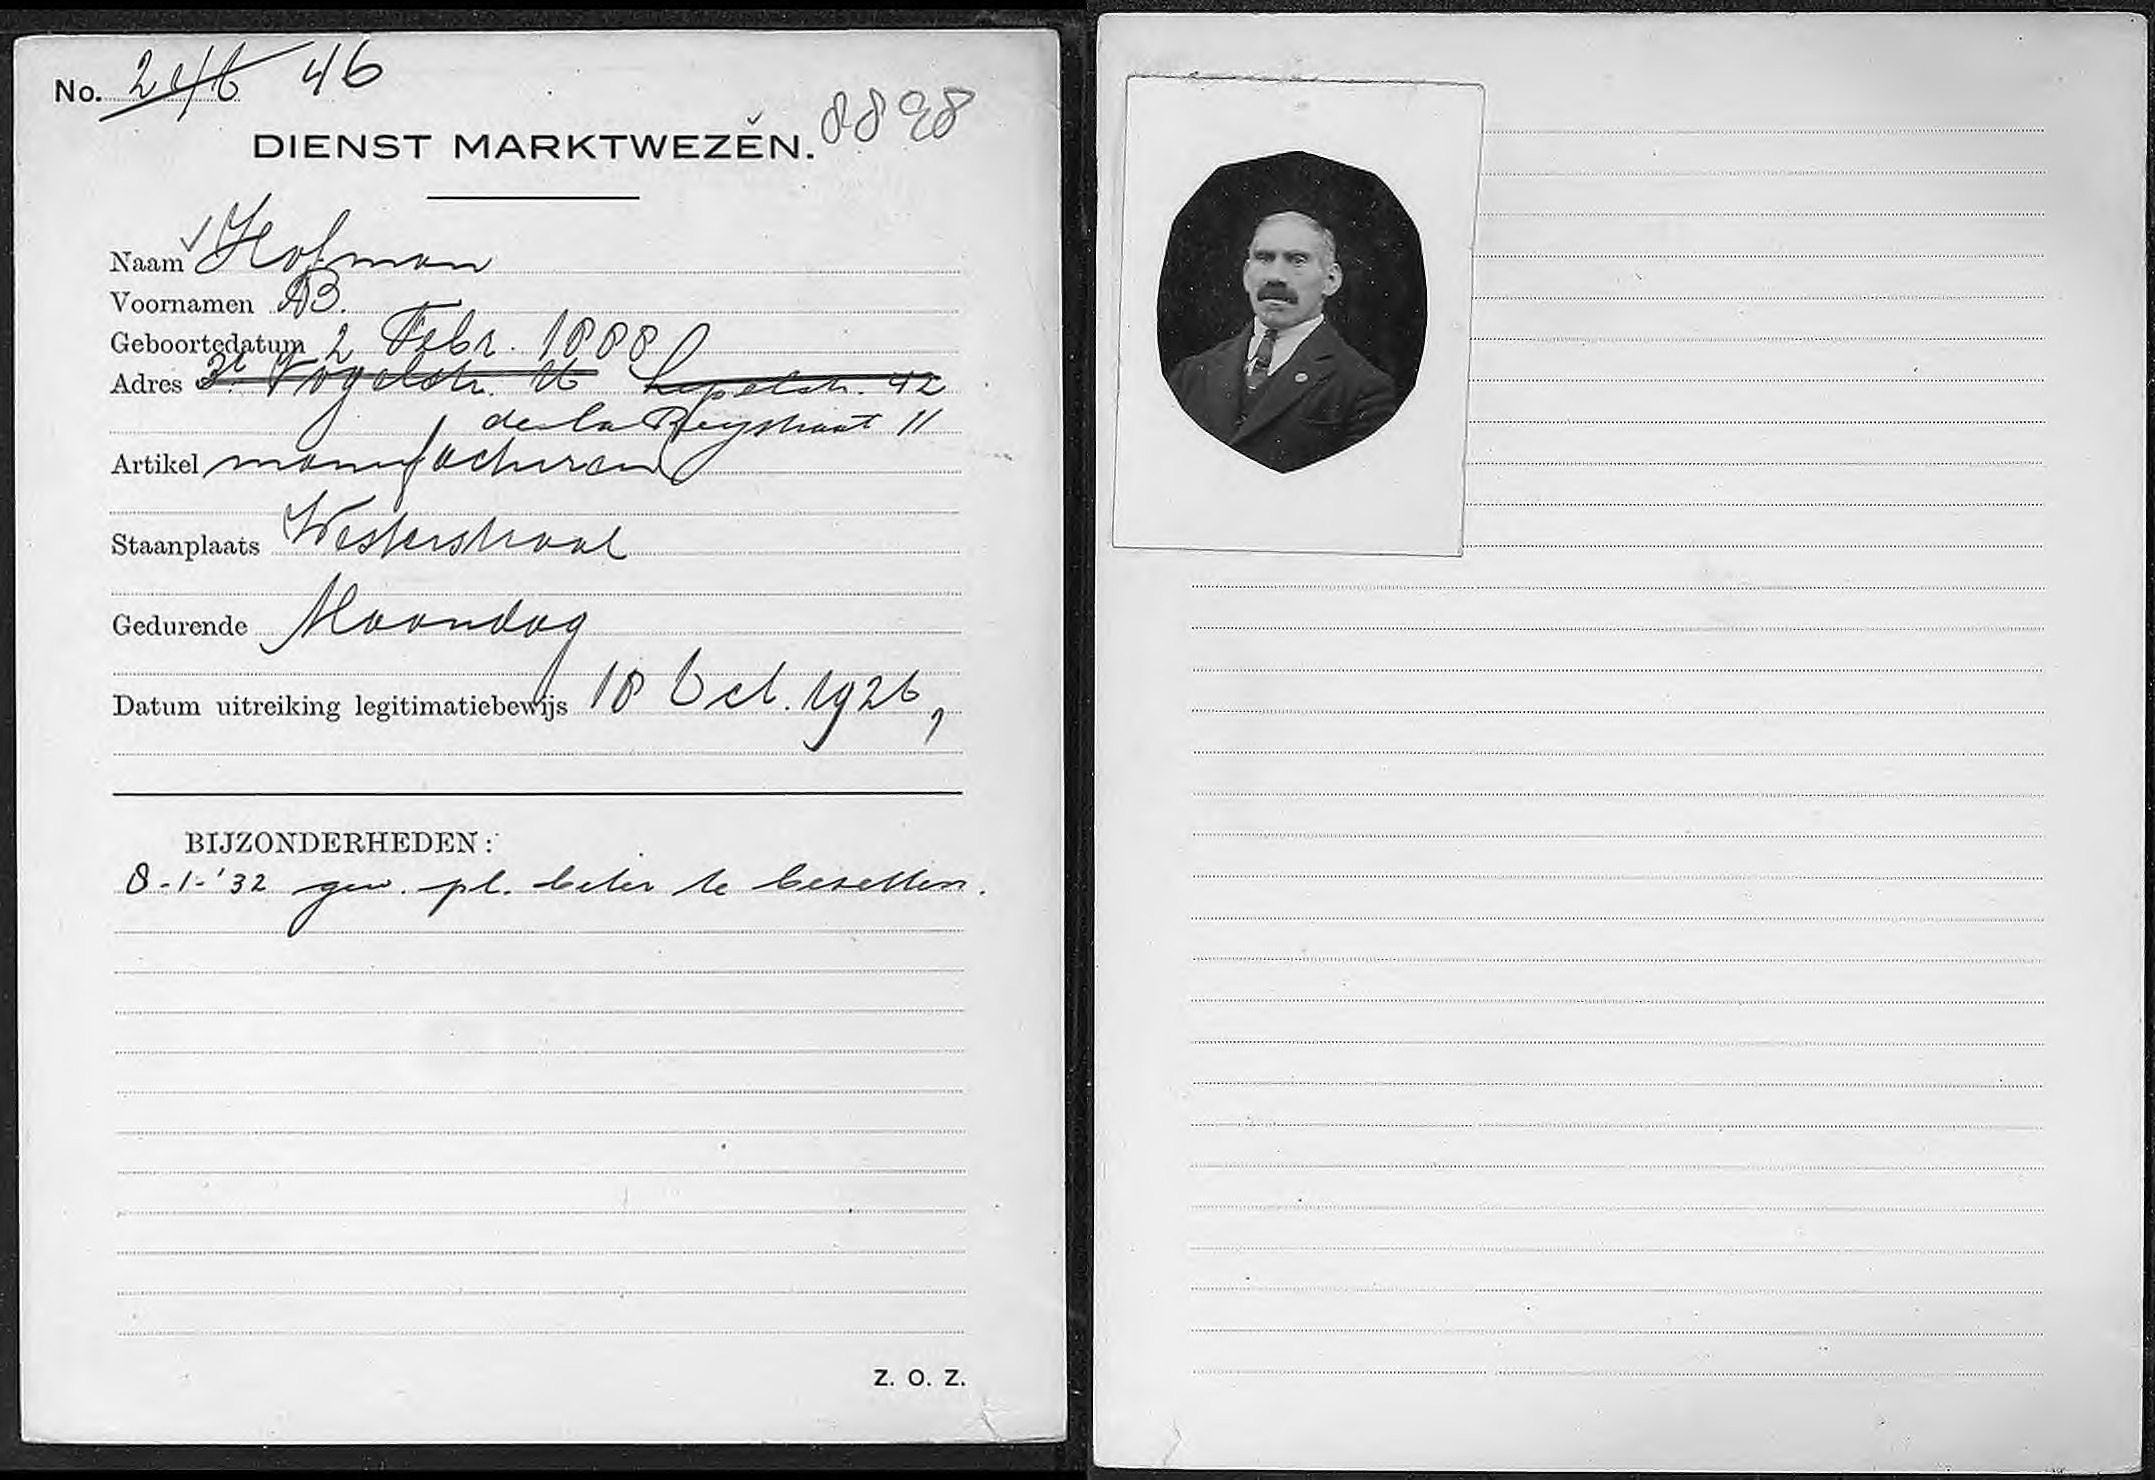 No. 246 46
8898
DIENST MARKTWEZEN.
Naam Hofman
Voornamen B.
Geboortedatum 2 Febr. 1888
Adres Vogelstr. 16 Lepelstr. 42
de la Reystraat 11
Artikel manufacturen
Staanplaats Westerstraat
Gedurende Maandag
Datum uitreiking legitimatiebewijs 18 Oct. 1926,
BIJZONDERHEDEN:
8-1-'32 gew. pl. beter te bezetten.
Z. O. Z.